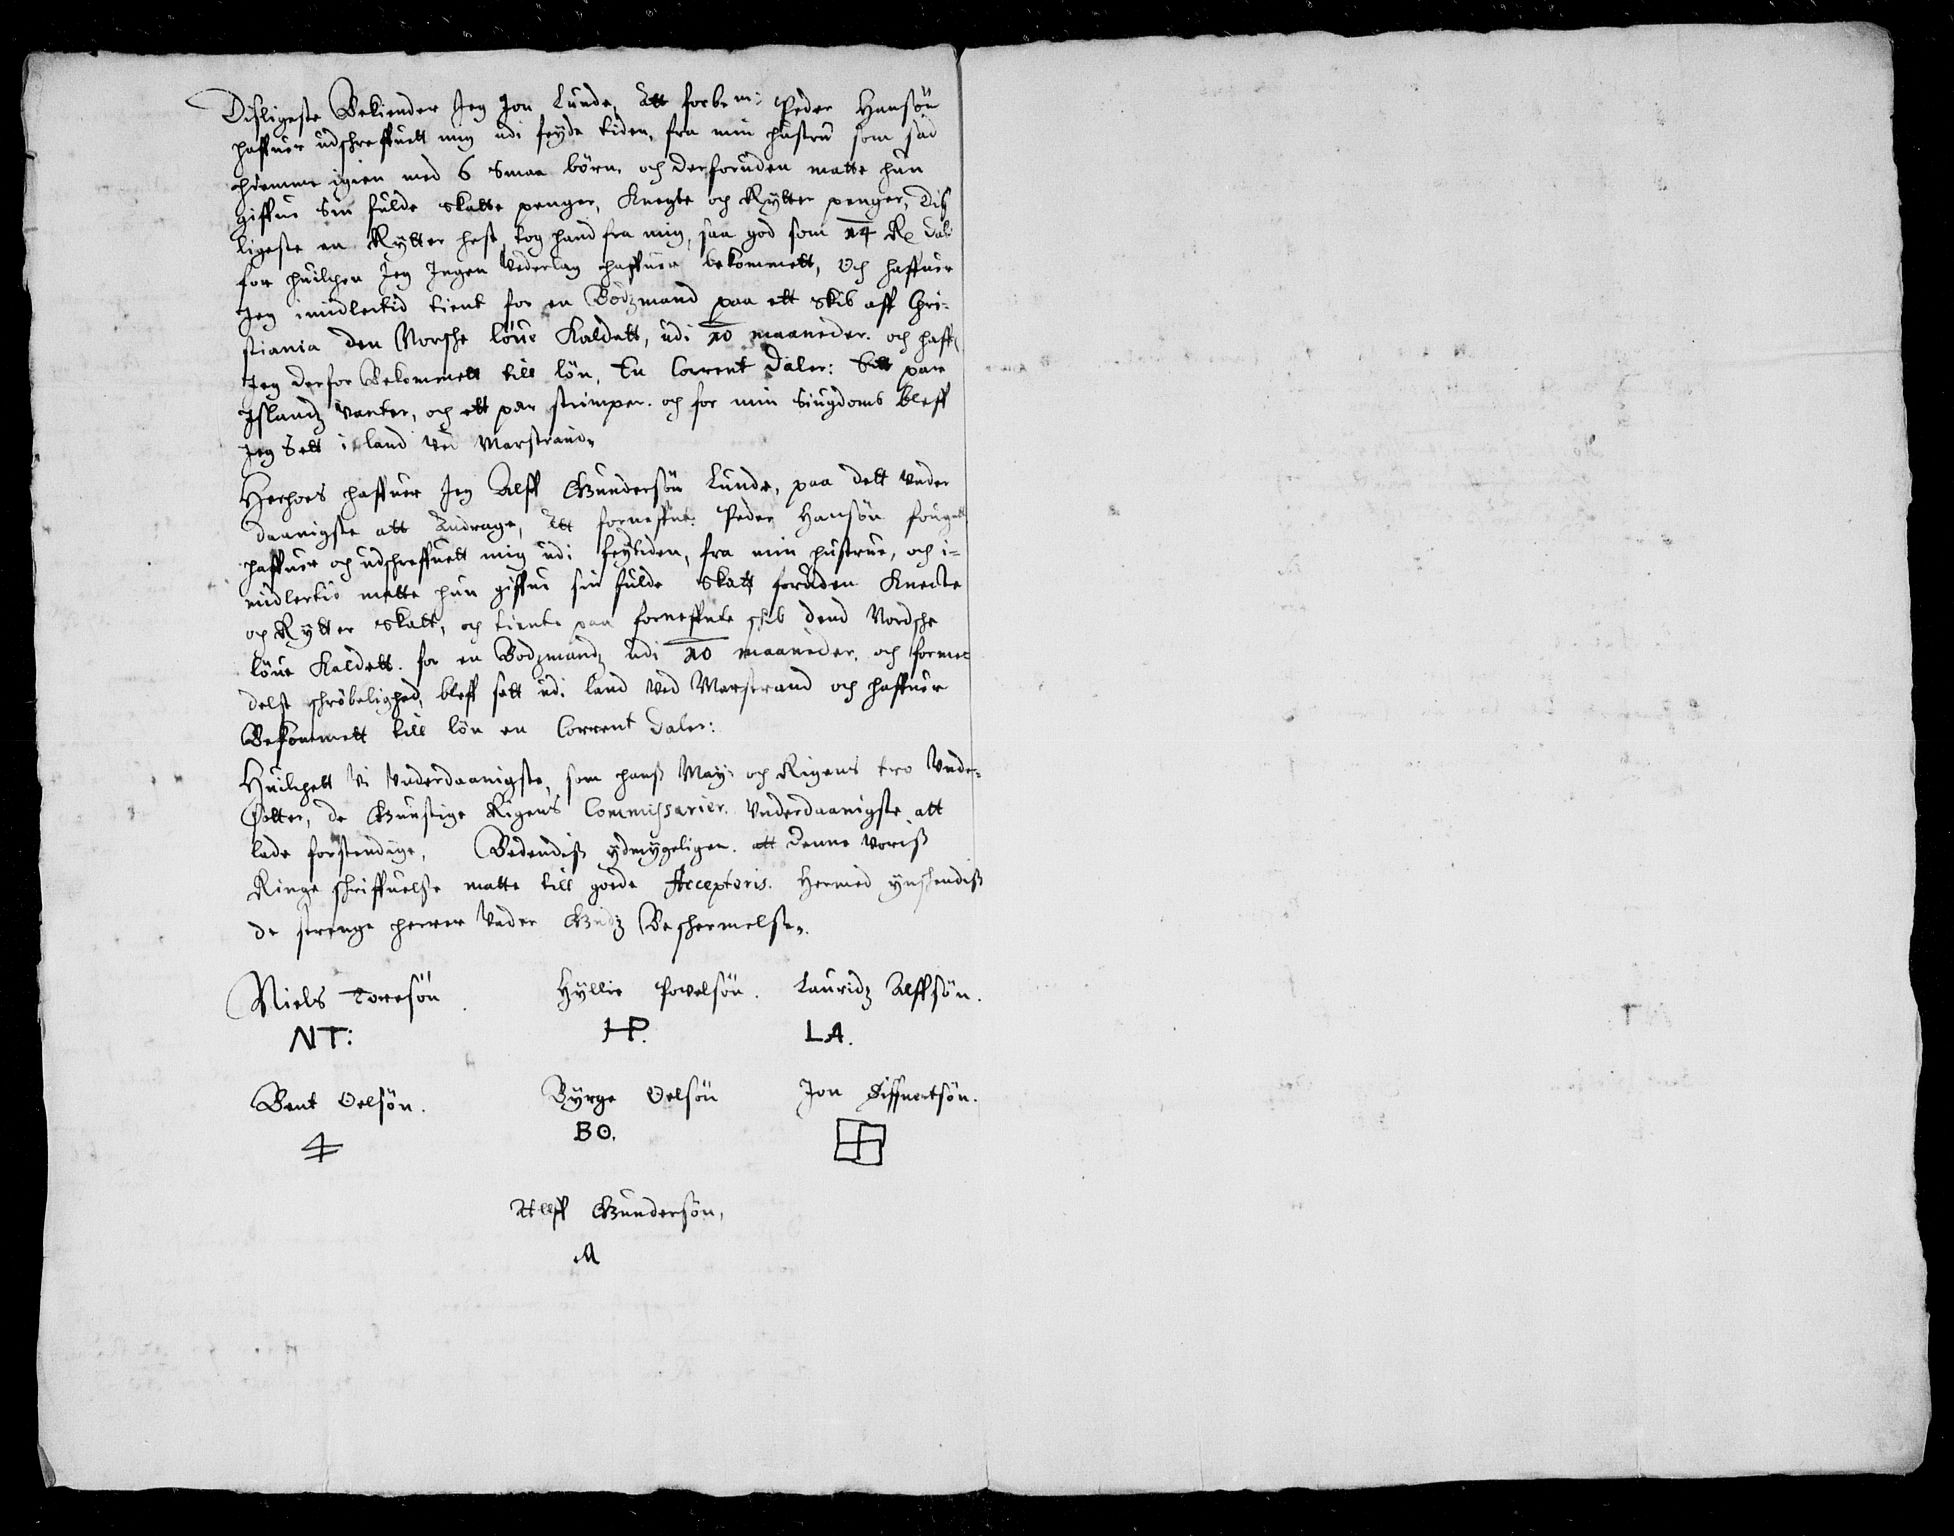 Disligeste Bekiender Jeg Jon Lunde, Att forbe.m: Peder Hansön
haffuer udschreffuett mig udi feyde tiden, fra min hustru som sad
hiemme igien med 6 smaa börn, och derforuden matte hun
giffue sin fulde skatte penger, Knegte och Rytter penger, Diß
ligeste en Rytter hest, tog hand fra mig, saa god som 14 R dal
for huilchen Jeg Ingen Vederlag haffuer bekommett, Och haffuer
Jeg imidlertid tient for en Bodzmand paa ett skib aff Chri-
stiania den Norsche löue Kaldett, udi 10 maaneder. och haff
Jeg derfor Bekommett till lön, En Corrent daler: Ett par
Islandz Vanter, och ett par strimper. och for min Siugdoms bleff
Jeg Sett i land Ved Marstrand.
Herhoes haffuer Jeg Alff Gundersön Lunde, paa dett Vnder
daanigste att Andrage, Att forneffnte Peder Hansön fougett
haffuer och udschreffuett mig udi feytiden, fra min hustrue, och i-
midlertid matte hun giffue sin fulde skatt foruden Knecte
och Rytter skatt, och tiente paa forneffnte skib dend Nordsche
löue Kaldett. for en Bodzmandz udi 10 maaneder. och forme
delst schröbelighed, bleff sett udi land Ved Marstrand och haffuer
Bekommett till lön en Corrent daler:
Huilchett Vi Vnderdaanigste, som hans May: och Rigens tro Vnder-
satter, de Gunstige Rigens Commissarier. Vnderdaanigste att
lade forstendige, Bedendiß ydmygeligen. att denne Voriß
Ringe schriffuelse matte till goede Accepteris. Hermed ynschendiß
de strenge herrer Vnder Gudz Beschermelse.
Niels Toresön. Hyllie Povelsön. Lauridz Alffsön.
NT: HP. LA.
Bent Oelsön. Byrge Oelsön Jon Siffuertsön.
BO.
Alff Gundersön,
A